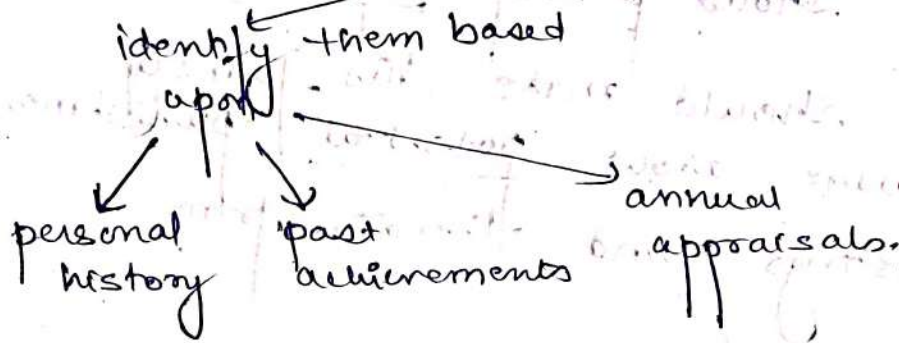 identify them based
apon
personal
history
past
achievements
annual
appraisals.